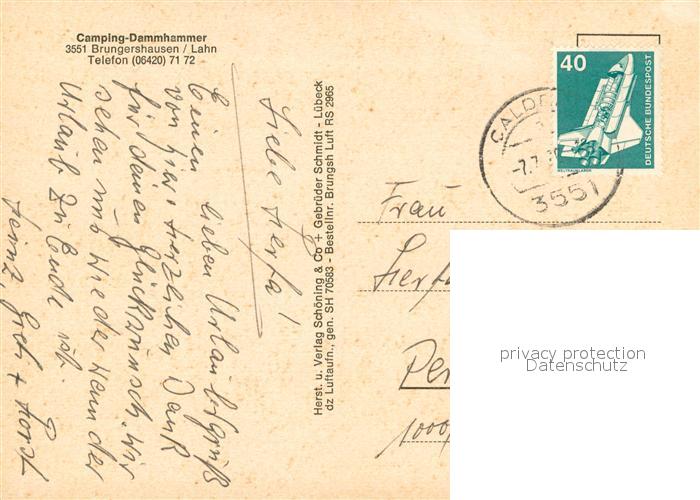 Camping-Dammhammer
3551 Brungershausen / Lahn
Telefon (06420) 71 72
Liebe Herta!
Einen lieben Urlaubsgruß
von hier. Herzlichen Dank
für deinen Glückwunsch. Wir
sehen uns wieder wenn der
Urlaub zu Ende ist.
Heinz, + Horst
Herst. u. Verlag Schöning & Co + Gebrüder Schmidt - Lübeck
dz Luftaufn., gen. SH 70583 - Bestellnr. Brungsh Luft RS 2965
40
DEUTSCHE BUNDESPOST
WELTRAUMLABOR
-7.7.
3551
Frau
Herta
1000
privacy protection
Datenschutz